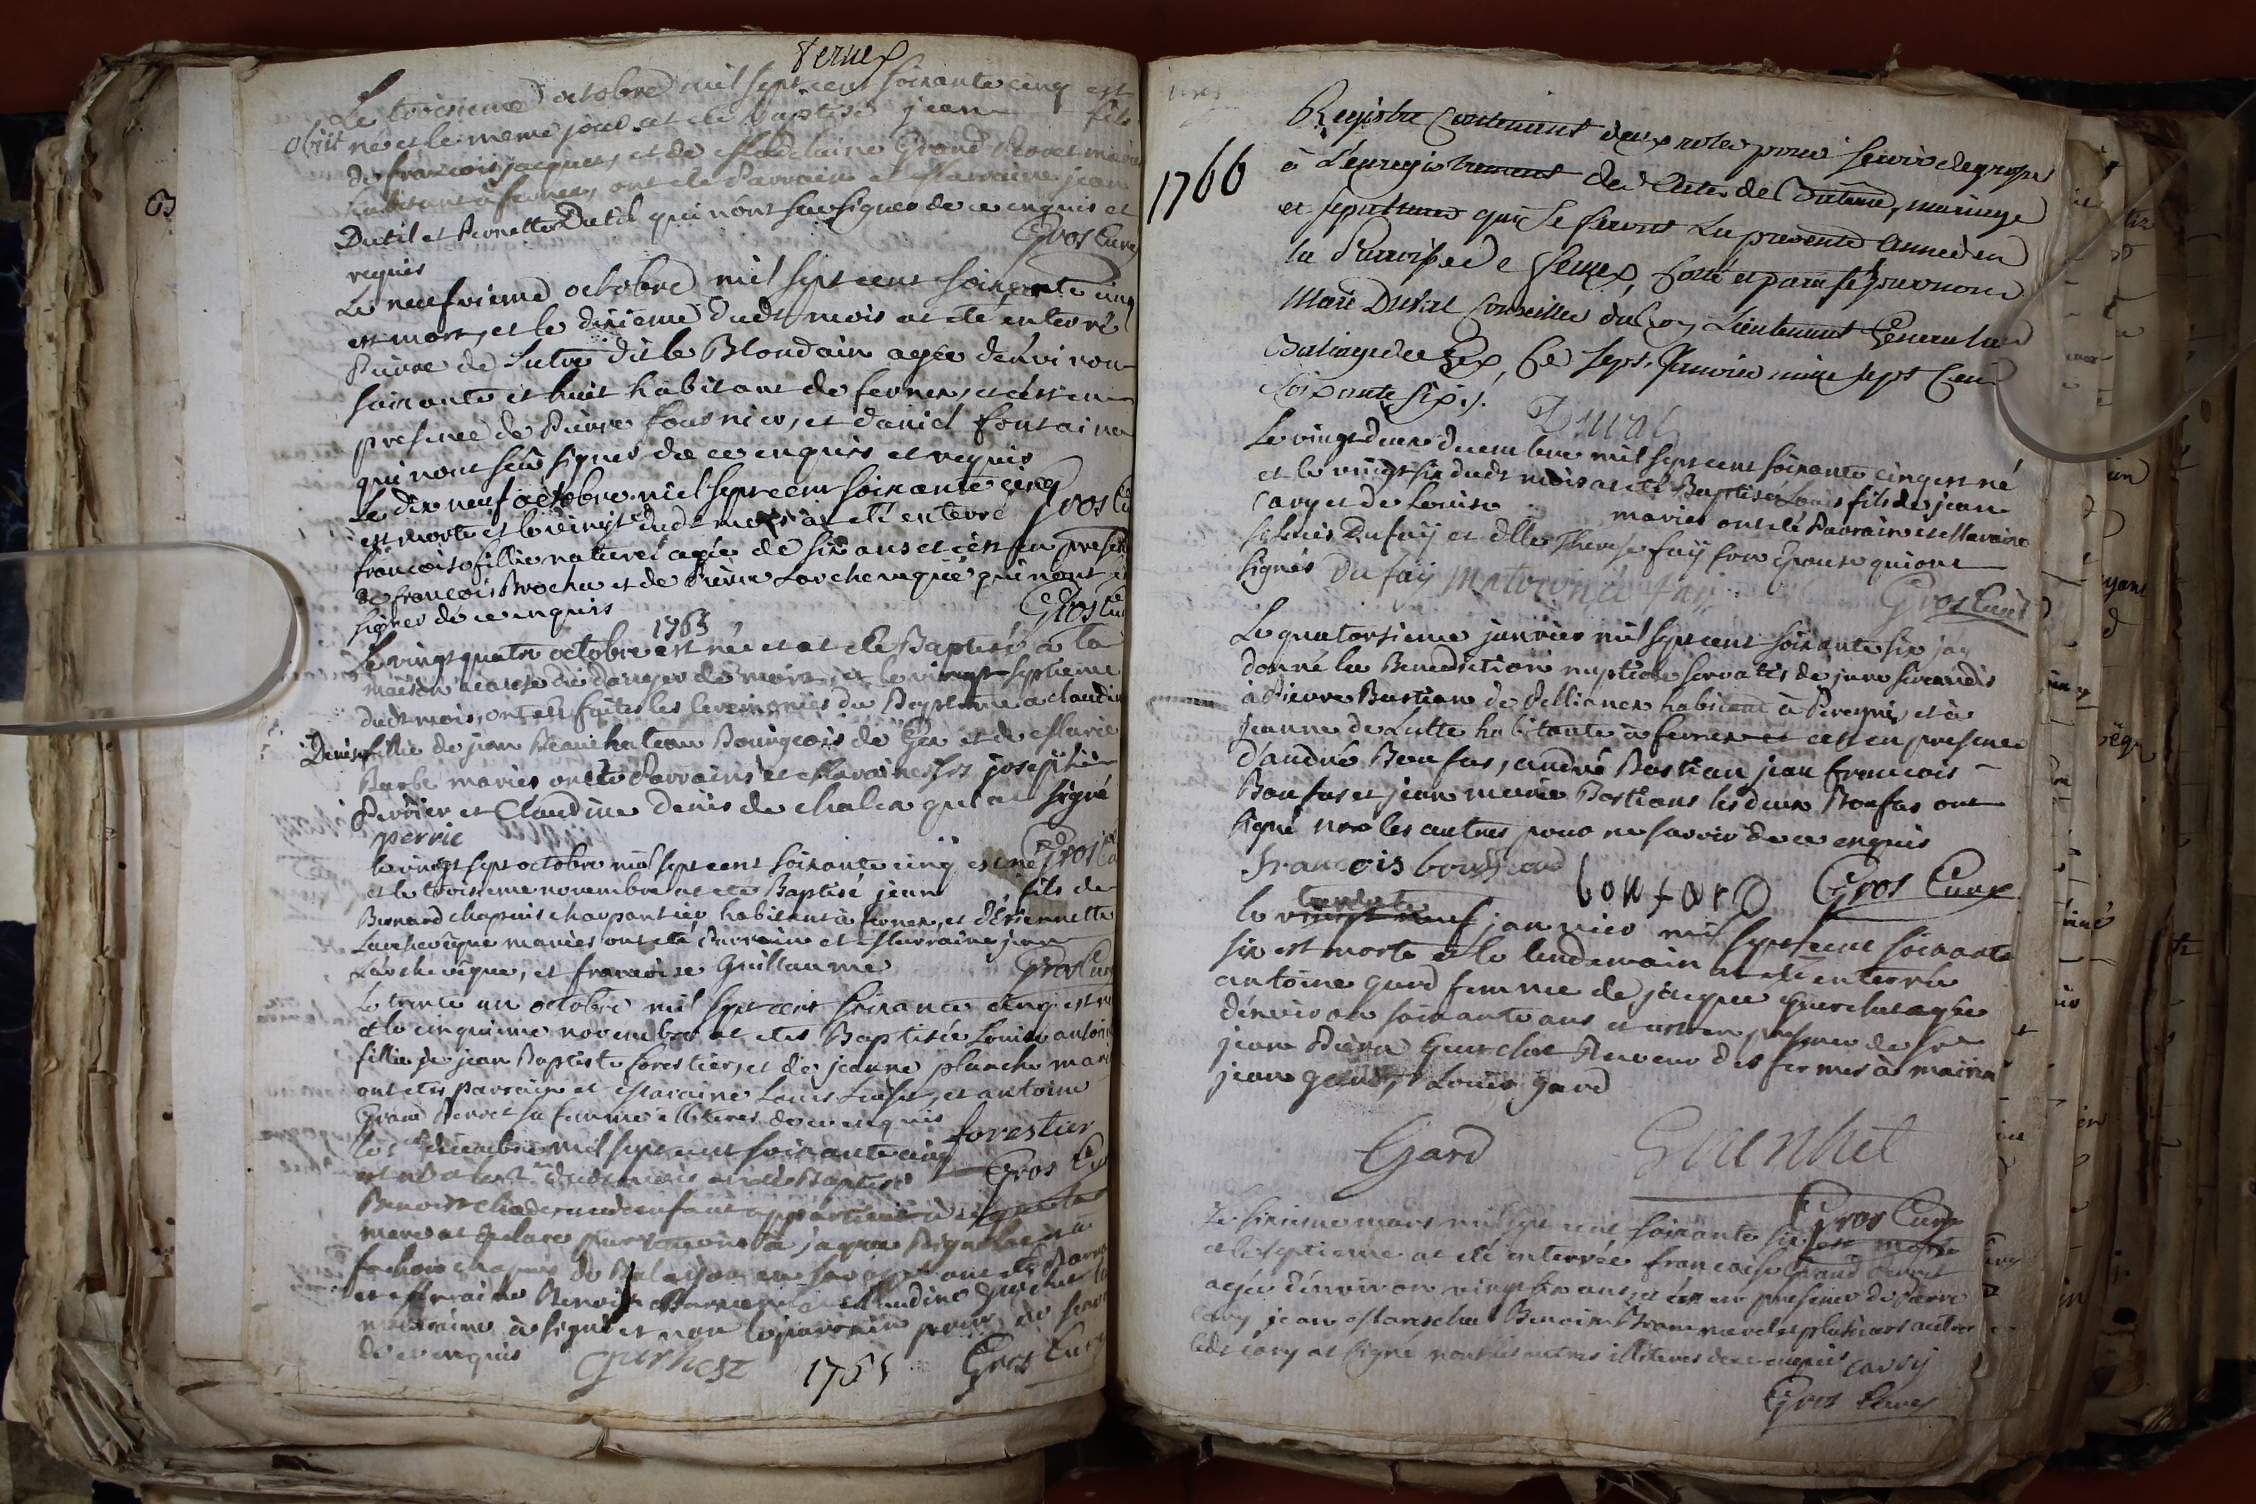 Fernex
Le troisieme octobre mil sept cent soixante cinq est
obiit né et le meme jour at eté baptisé jean fils
de françois jacques, et de Madelaine Grand Perret mariés
habitant à fernex, ont eté Parrain et Marraine jean
Dutil et Pernette Dutil qui n'ont sçu signer de ce enquis et
requis Gros Curé
Le neufvieme octobre mil sept cent soixante cinq
est mort, et le dixieme dudt mois at eté enterré
Pierre de Lutre dit le Blondain agée d'environ
soixante et huit habitant de fernex, et c'est en
presence de Pierre fournier, et daniel fontaine
qui n'ont sçu signer de ce enquis et requis
Le dix neuf octobre mil sept cent soixante cinq Gros Cu
est morte et le vingt dudt mois at eté enterré
françoise fillie naturel agée de six ans et c'est en presen
de françois Brochu et de Pierre Larcheveque qui n'ont
signer de ce enquis Gros Cu
1765
Le vingt quatre octobre est né et at eté Baptisé a la
maison acause du danger de mort, et le vingt septieme
dudt mois, ont eté faites les ceremonies du Bapteme a claudine
Denise fillie de jean Beauchateau Bourgeois de Gex et de Marie
Barbe mariés ont eté Parrains et Marraines joseph
Perrier et Claudine denis de chalex qui at signé
perrie
le vingt sept octobre mil sept cent soixante cinq est né Gros Cu
et le troisieme novembre at eté Baptisé jean fils de
Bernard chapuis charpantier habitant à fernex, et d'Etiennette
Larcheveque mariés ont eté Parrain et Marraine jean
Larcheveque, et françoise Guillaume Gros Cure
Le trente un octobre mil sept cent soixante cinq est né
et le cinquieme novembre at eté Baptisée Louise antoin
fillie de jean Baptiste forestier, et de jeanne planche marié
ont eté parrain et Maraine Louis et antoine
Grand Perret sa femme illiteres de ce enquis
forestier
le decembre mil sept cent soixante cinq
est né at eté Baptisé Gros Cu
Benoist enfant
mere at declare
chapuis
et Marraine Benoist et claudine
marraine à signé et non le parrain pour ne savoir
de ce enquis 1765 Gros Cure
Registre Contenant deux roles pour servir de grosse
1766 à L'enregistrement des Actes de Bateme, mariage
et sepulture qui se feront La presente Année en
la Parroisse de Fernex, Cotté et paraffé par nous
Marie Duval Conseiller du Roy Lieutenant General au
Bailiage de Gex, Ce sept Janvier mille sept Cent
Soixante six ./.
Duval
Le vingt deux decembre mil sept cent soixante cinq est né
et le vingt six dudt mois at eté Baptisé Louis fils de jean
Cary et de Louise mariés ont eté Parrain et Maraine
Sr Louis Dufaÿ et dlle Therese faÿ son Epouse qui ont
signés Du faÿ Gros Curé
Le quatorsieme janvier mil sept cent soixante six jay
donné la Benediction nuptiale servatis de jure servandis
à Pierre Bastian de Pellionex habitant à Peregni, et à
Jeanne de Lutte habitante à fernex et cest en presence
d'andré Boufas, andré Bastian jean françois
Boufas et jean marie Bastians les deux Boufas ont
signé non les autres pour ne savoir de ce enquis
francois bouffard bonfard Gros Cure
trente
le vingt neuf janvier mil sept cent soixante
six est morte et le lendemain at eté enterrée
antoine gard femme de jacque Guerchet agée
d'environ soixante ans et cest en presence de Sr
jean Pierre Guerchet Receveur des fermes à mairin
jean gard, Louis gard
Gard Guenhet
Gros Curé
Le sixieme mars mil sept cent soixante six est morte
et le septieme at eté enterrée françoise Grand Perret
agée d'environ vingt six ans, et c'est en presence de Pierre
Cary jean Mareschal Benoist et plusieurs autres
ledt cary at signé non les autres illiteres de ce enquis carrÿ
Gros Curé